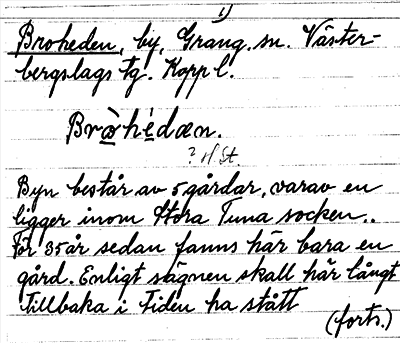 1)
Broheden, by, Grang. sn. Väster-
bergslags tg. Kopp l.
Bròhédæn.
? H. St.
Byn består av 5 gårdar, varav en
ligger inom Stora Tuna socken..
För 35 år sedan fanns här bara en
gård. Enligt sägnen skall här långt
tillbaka i tiden ha stått
(forts.)